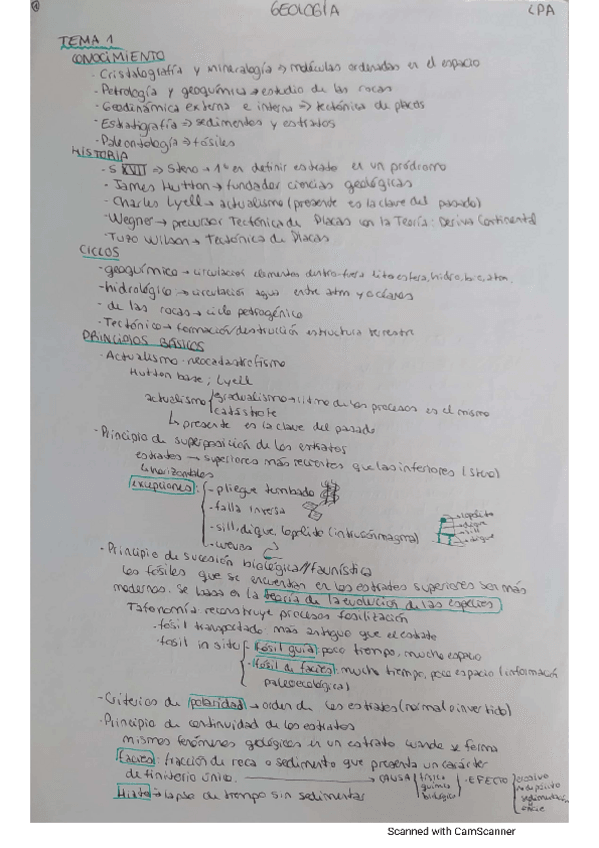 GEOLOGÍA
LPA
TEMA 1
CONOCIMIENTO
- Cristalografía y mineralogía => moléculas ordenadas en el espacio
- Petrología y geoquímica → estudio de las rocas
- Geodinámica externa e interna => tectónica de placas
- Estratigrafía => sedimentos y estratos
- Paleontología → fósiles
HISTORIA
- S XVII => Steno → 1º en definir estrato en un pródromo
- James Hutton → fundador ciencias geológicas
- Charles Lyell → actualismo (presente es la clave del pasado)
- Wegner → precursor Tectónica de Placas con la Teoría: Deriva Continental
- Tuzo Wilson → Tectónica de Placas
CICLOS
- geoquímico → circulación elementos dentro-fuera litosfera, hidro, bio, atm.
- hidrológico: → circulación agua entre atm y océanos
- de las rocas → ciclo petrogénico
- Tectónico → formación/destrucción estructura terrestre
PRINCIPIOS BÁSICOS
- Actualismo - neocatastrofismo
Hutton base; Lyell
actualismo gradualismo → ritmo de los procesos es el mismo
catástrofe
↳ presente es la clave del pasado
- Principio de superposición de los estratos
estratos → superiores más recientes que los inferiores (Steno)
↳ horizontales
excepciones: - pliegue tumbado
- falla inversa
- sill, dique, lopolito (intrusión magma)
- cuevas
lopolito
dique
sill
dique
- Principio de sucesión biológica//faunística
Los fósiles que se encuentran en los estratos superiores son más
modernos. Se basa en la teoría de la evolución de las especies
Tafonomía reconstruye procesos fosilización
- fósil transportado más antiguo que el estrato
- fósil in situ - fósil guía: poco tiempo, mucho espacio
- fósil de facies: mucho tiempo, poco espacio (información
paleoecológica)
- Criterios de polaridad → orden de los estratos (normal o invertido)
- Principio de continuidad de los estratos
mismos fenómenos geológicos en un estrato cuando se forma
Facies: fracción de roca o sedimento que presenta un carácter
definitorio único. → CAUSA física química biológica - EFECTO erosivo no depósito sedimentación
Hiato → lapso de tiempo sin sedimentar
Scanned with CamScanner